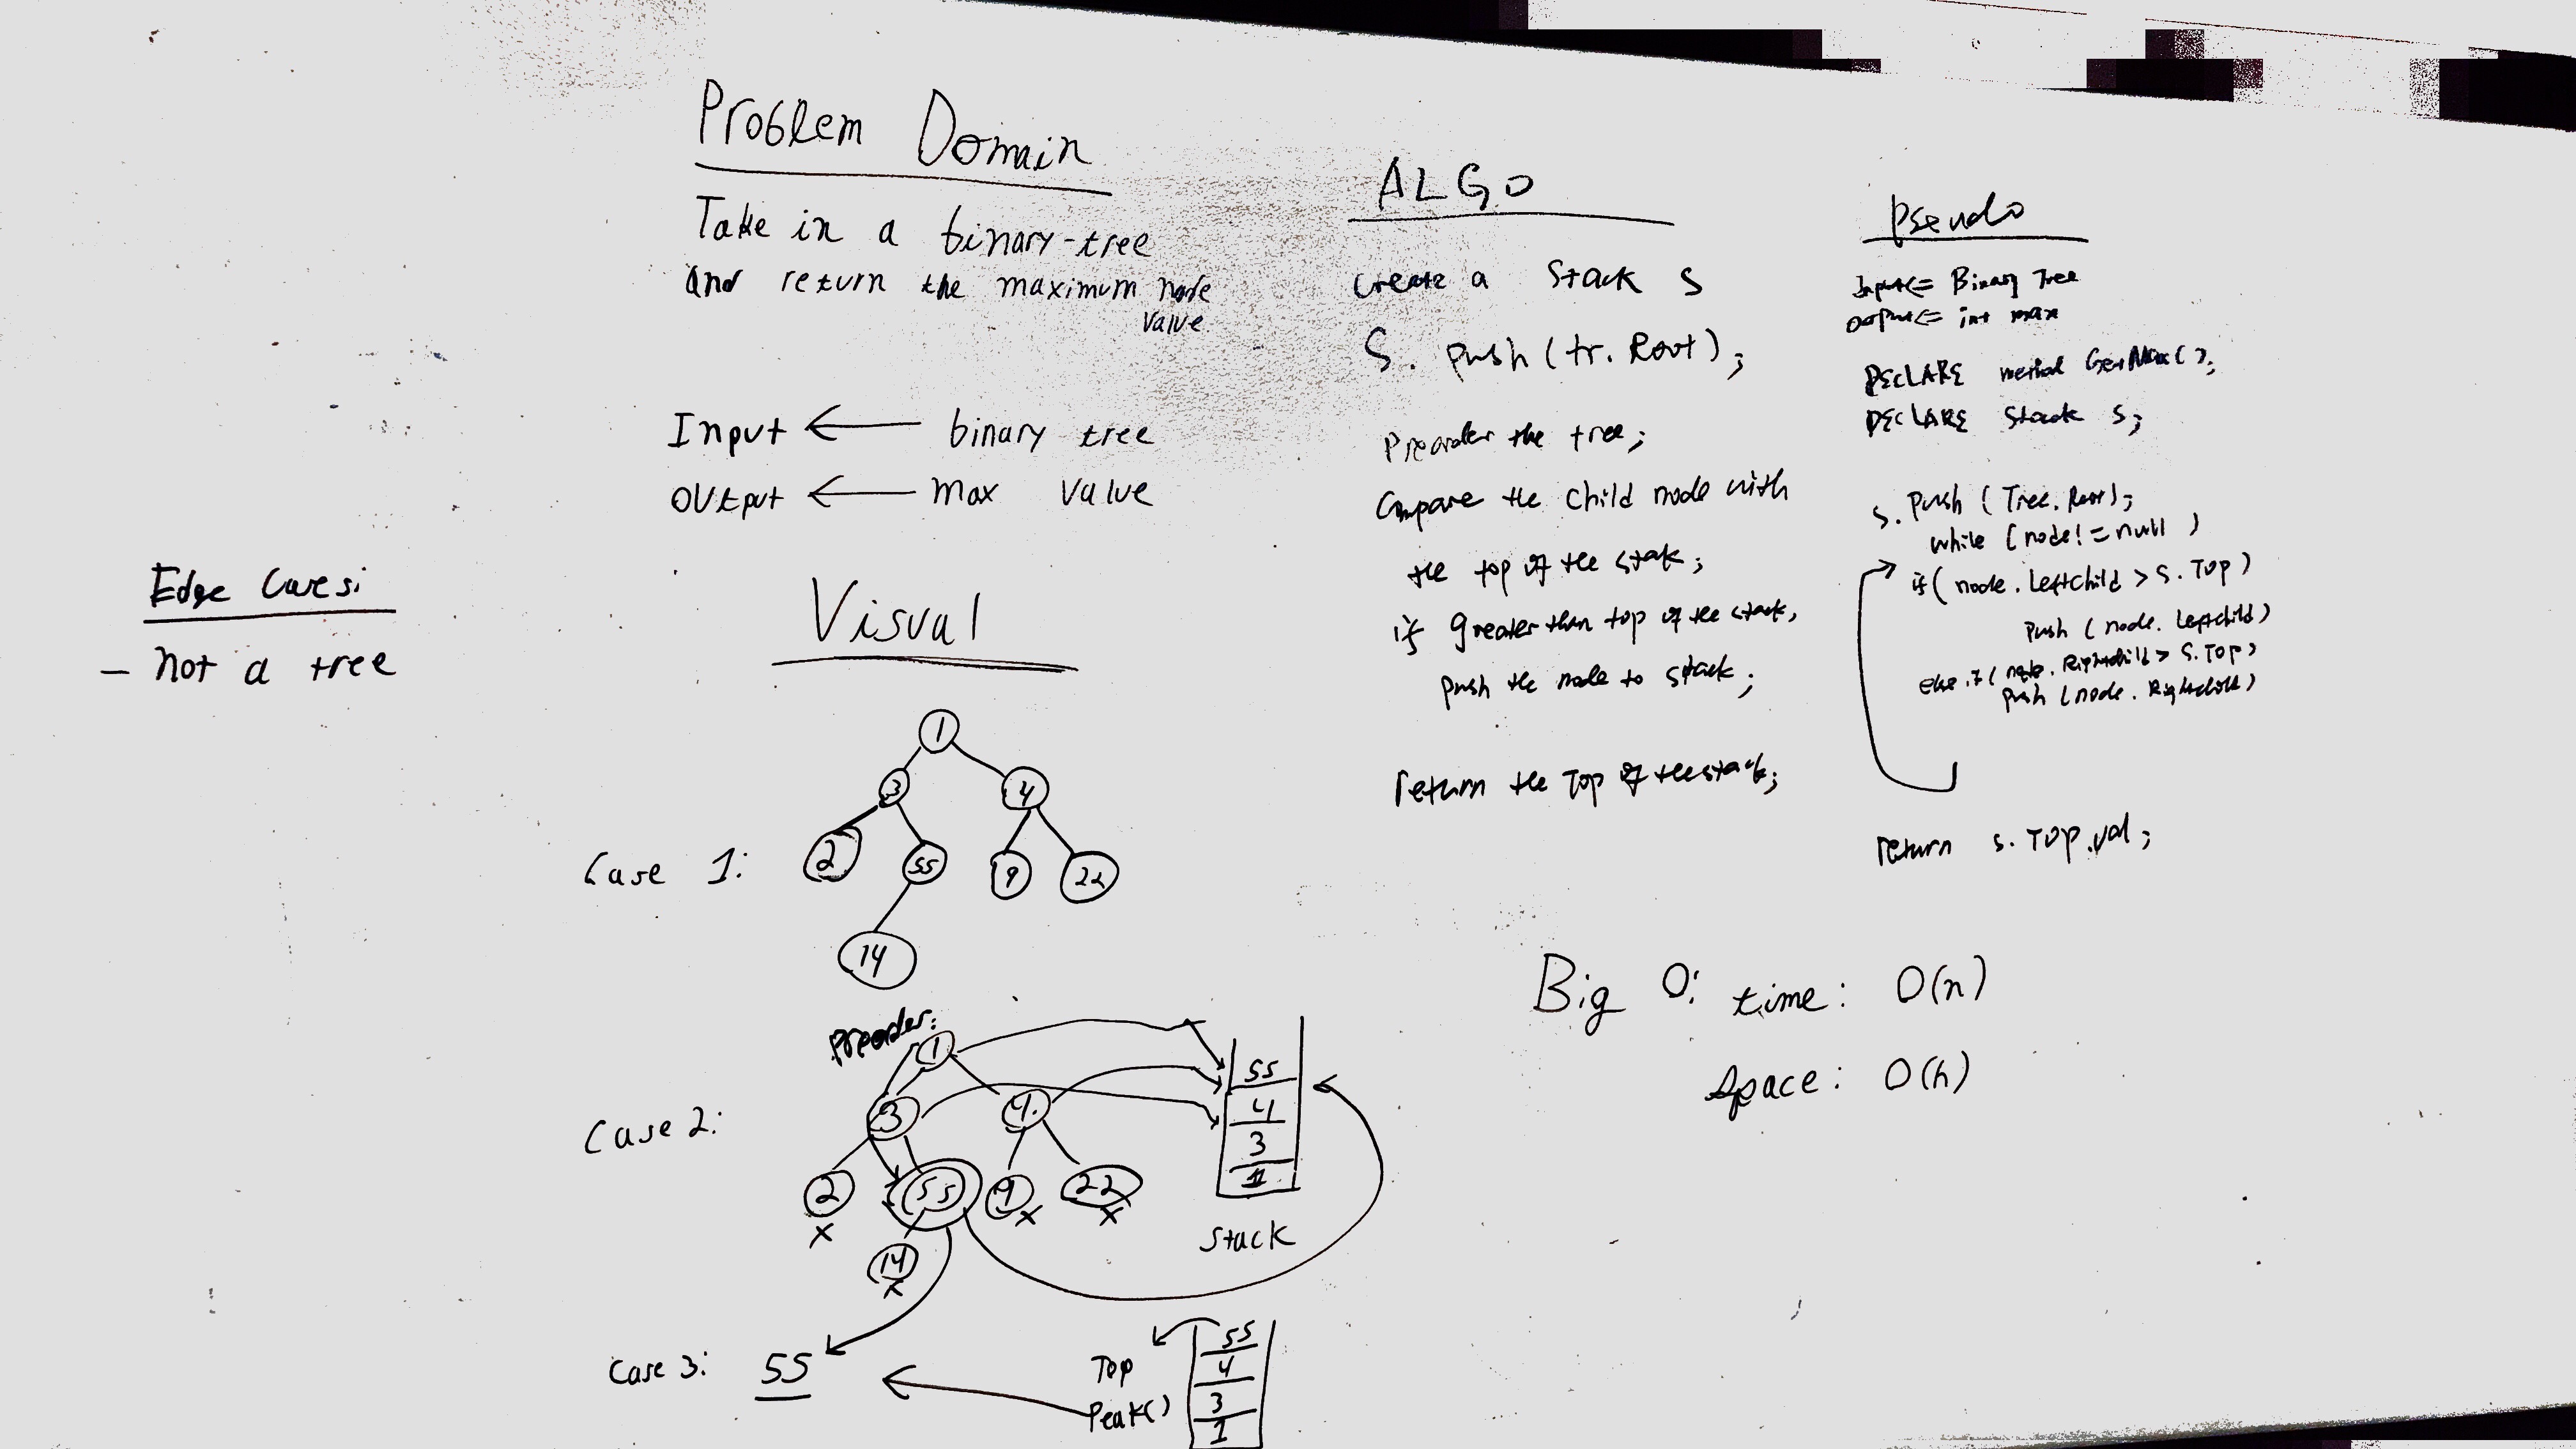 Problem Domain
Take in a binary-tree
and return the maximum node
value
Input ← binary tree
Output ← max value
Edge Cases:
- not a tree
Visual
1
3 4
Case 1: 2 55 9 22
14
Preorder:
1
Case 2: 3 4
2 55 9 22
x x x
14
x
55
4
3
1
Stack
Case 3: 55
Top
Peak()
55
4
3
1
ALGO
Create a Stack S
S. push (tr. Root);
Preorder the tree;
Compare the child node with
the top of the stak;
if greater than top of the stack,
push the node to stack;
return the Top of the stack;
Pseudo
Input <= Binary Tree
Output <= int max
DECLARE method GetMax();
DECLARE Stack S;
S. Push (Tree. Root);
while (node! = null )
if( node. LeftChild > S. Top)
push (node. Leftchild)
else if ( node. Rightchild > S. Top)
push (node. Rightchild)
return S. Top.val;
Big O: time: O(n)
Space: O(h)